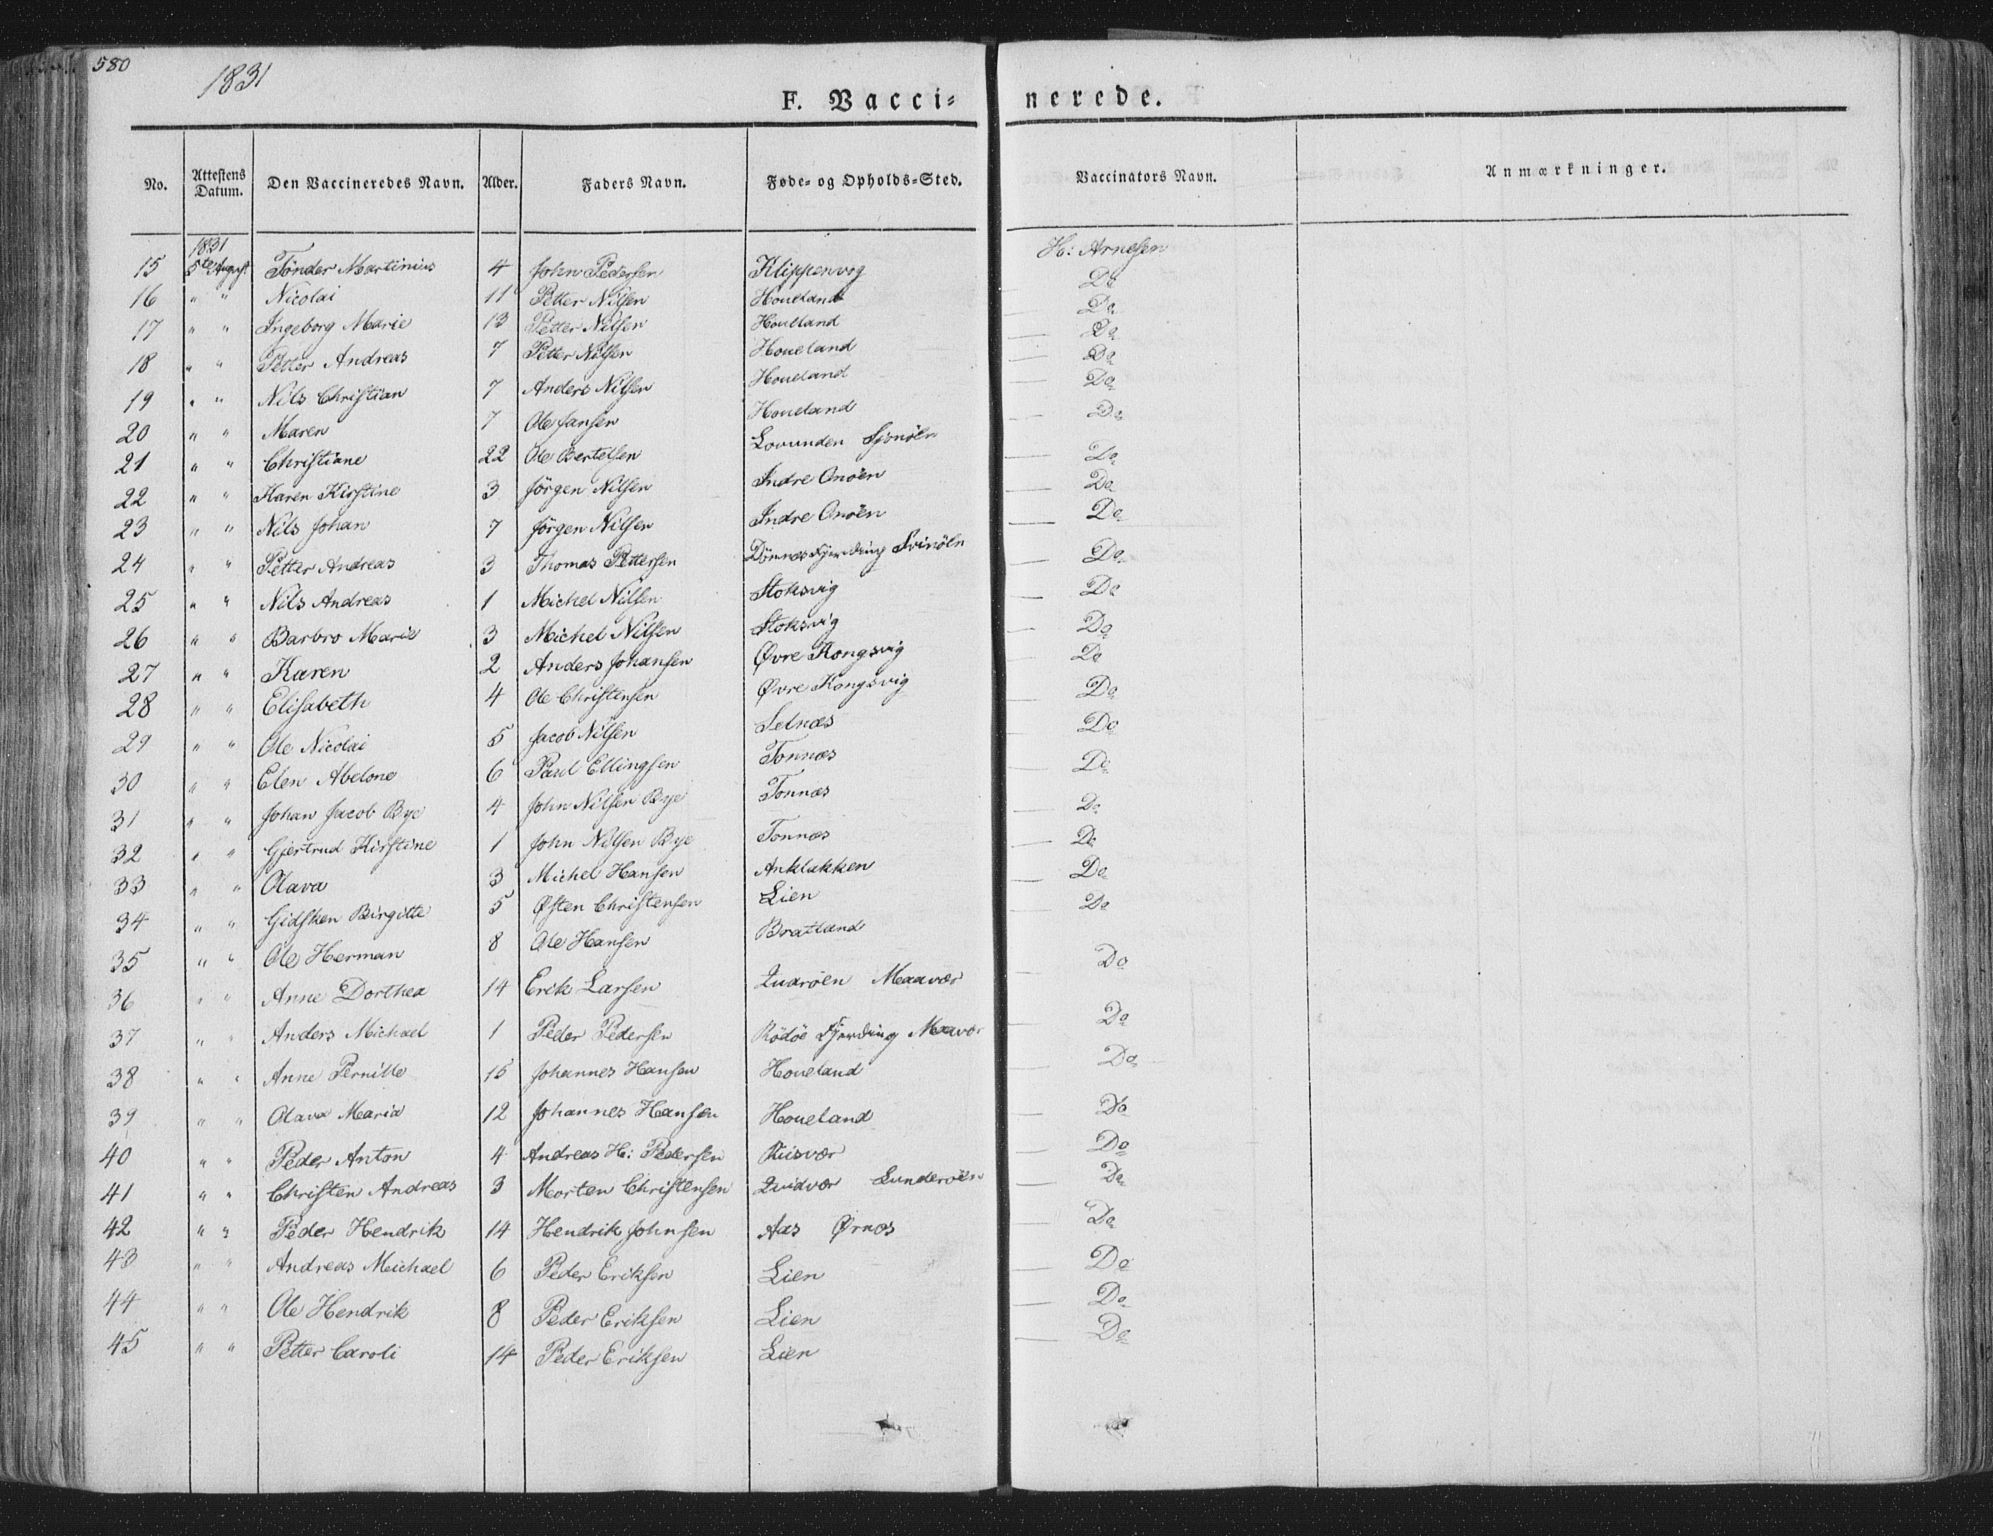 580
1831
F. Vaccinerede.
No. Attestens Datum. Den Vaccineredes Navn. Alder. Faders Navn. Føde- og Opholds-Sted. Vaccinators Navn. Anmærkninger.
1831
15 5te August Tønder Martinius 4 John Pedersen Klippenvog H: Arnesen
16 " " Nicolai 11 Petter Nilsen Houeland Do
17 " " Ingeborg Marie 13 Petter Nilsen Houeland Do
18 " " Petter Andreas 7 Petter Nilsen Houeland Do
19 " " Nils Christian 7 Anders Nilsen Houeland Do
20 " " Maren 7 Ole Jansen Houeland Do
21 " " Christiane 22 Ole Bertelsen Lovunden Do
22 " " Karen Kirstine 3 Jörgen Nilsen Indre Onöen Do
23 " " Nils Johan 7 Jörgen Nilsen Indre Onöen Do
24 " " Petter Andreas 3 Thomas Pettersen Dönnes Fjerding Svinöln Do
25 " " Nils Andreas 1 Michel Nilsen Stoksvig Do
26 " " Barbro Marie 3 Michel Nilsen Stoksvig Do
27 " " Karen 2 Anders Johansen Øvre Kongsvig Do
28 " " Elisabeth 4 Ole Christensen Øvre Kongsvig Do
29 " " Ole Nicolai 5 Jacob Nilsen Selnæs Do
30 " " Elen Abelone 6 Paul Ellingsen Tonnæs Do
31 " " Johan Jacob Bye 4 John Nilsen Bye Tonnæs Do
32 " " Gjertrud Kirstine 1 John Nilsen Bye Tonnæs Do
33 " " Olava 3 Michel Hansen Anklakken Do
34 " " Gidsken Birgitte 5 Østen Christensen Lien Do
35 " " Ole Herman 8 Ole Hansen Bratland Do
36 " " Anne Dorthea 14 Erik Larsen Quaröen Maavær Do
37 " " Anders Michael 1 Peder Pedersen Rödöe Fjerding Maavær Do
38 " " Anne Pernille 15 Johannes Hansen Houeland Do
39 " " Olava Maria 12 Johannes Hansen Houeland Do
40 " " Peder Anton 4 Andreas H: Pedersen Riisvær Do
41 " " Christen Andreas 3 Morten Christensen Quidvær Sunderöen Do
42 " " Peder Hendrik 14 Hendrik Johnsen Aas Ørnes Do
43 " " Andreas Michael 6 Peder Eriksen Lien Do
44 " " Ole Hendrik 8 Peder Eriksen Lien Do
45 " " Petter Caroli 14 Peder Eriksen Lien Do